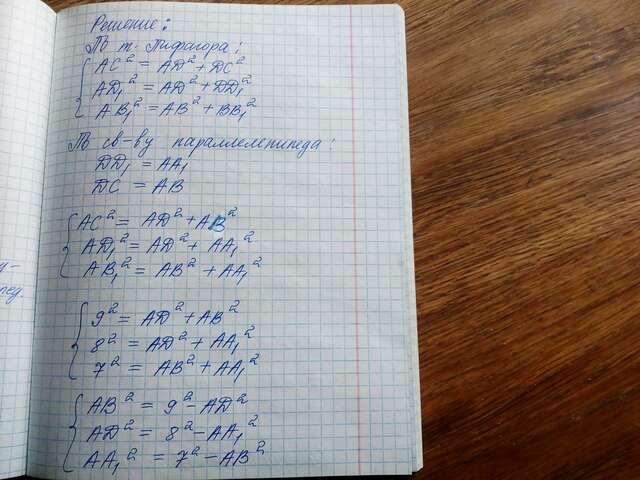 Решение:
По т. Пифагора:
AC² = AD² + DC²
AD₁² = AD² + DD₁²
AB₁² = AB² + BB₁²
По св-ву параллелепипеда:
DD₁ = AA₁
DC = AB
AC² = AD² + AB²
AD₁² = AD² + AA₁²
AB₁² = AB² + AA₁²
9² = AD² + AB²
8² = AD² + AA₁²
7² = AB² + AA₁²
AB² = 9² - AD²
AD² = 8² - AA₁²
AA₁² = 7² - AB²